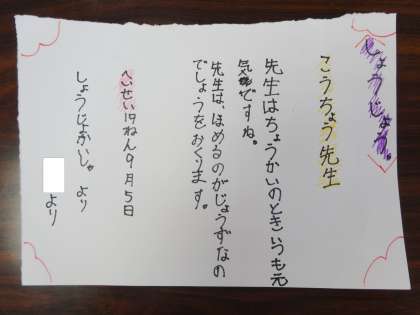 しょうじょう。
こうちょう先生
先生はちょうかいのときいつも元
気ですね。
先生は、ほめるのがじょうずなの
でしょうをおくります。
へいせい19ねん9月5日
しょうじょがいしゃ より
より